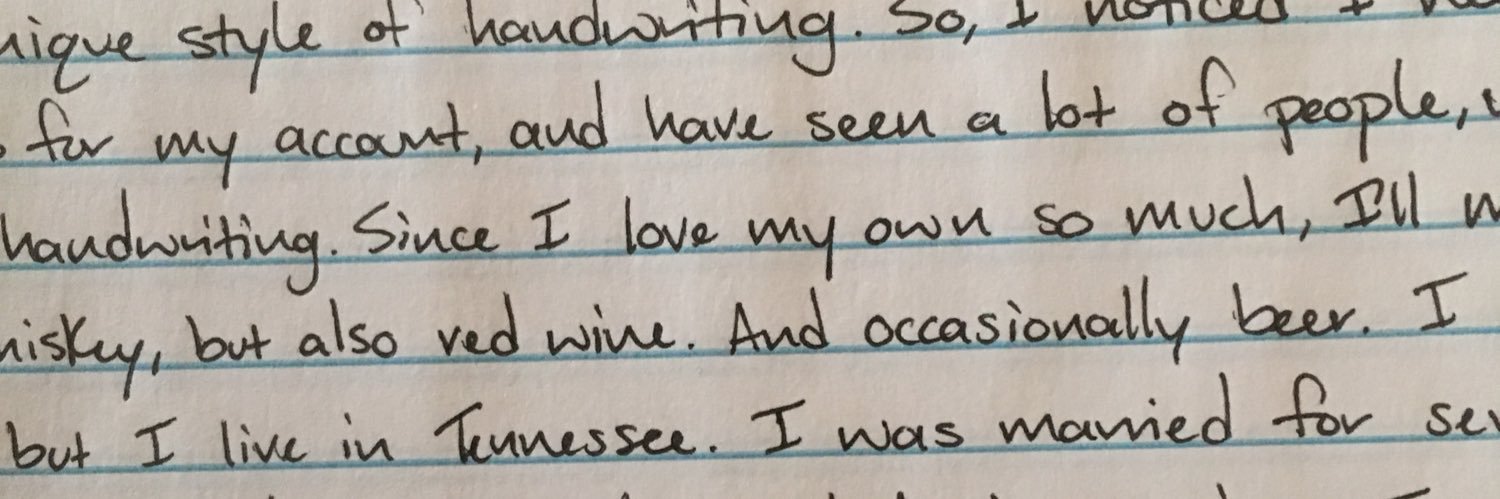 nique style of handwriting. So, I noticed I
for my account, and have seen a lot of people,
handwriting. Since I love my own so much, I'll
hiskey, but also red wine. And occasionally beer. I
but I live in Tennessee. I was married for